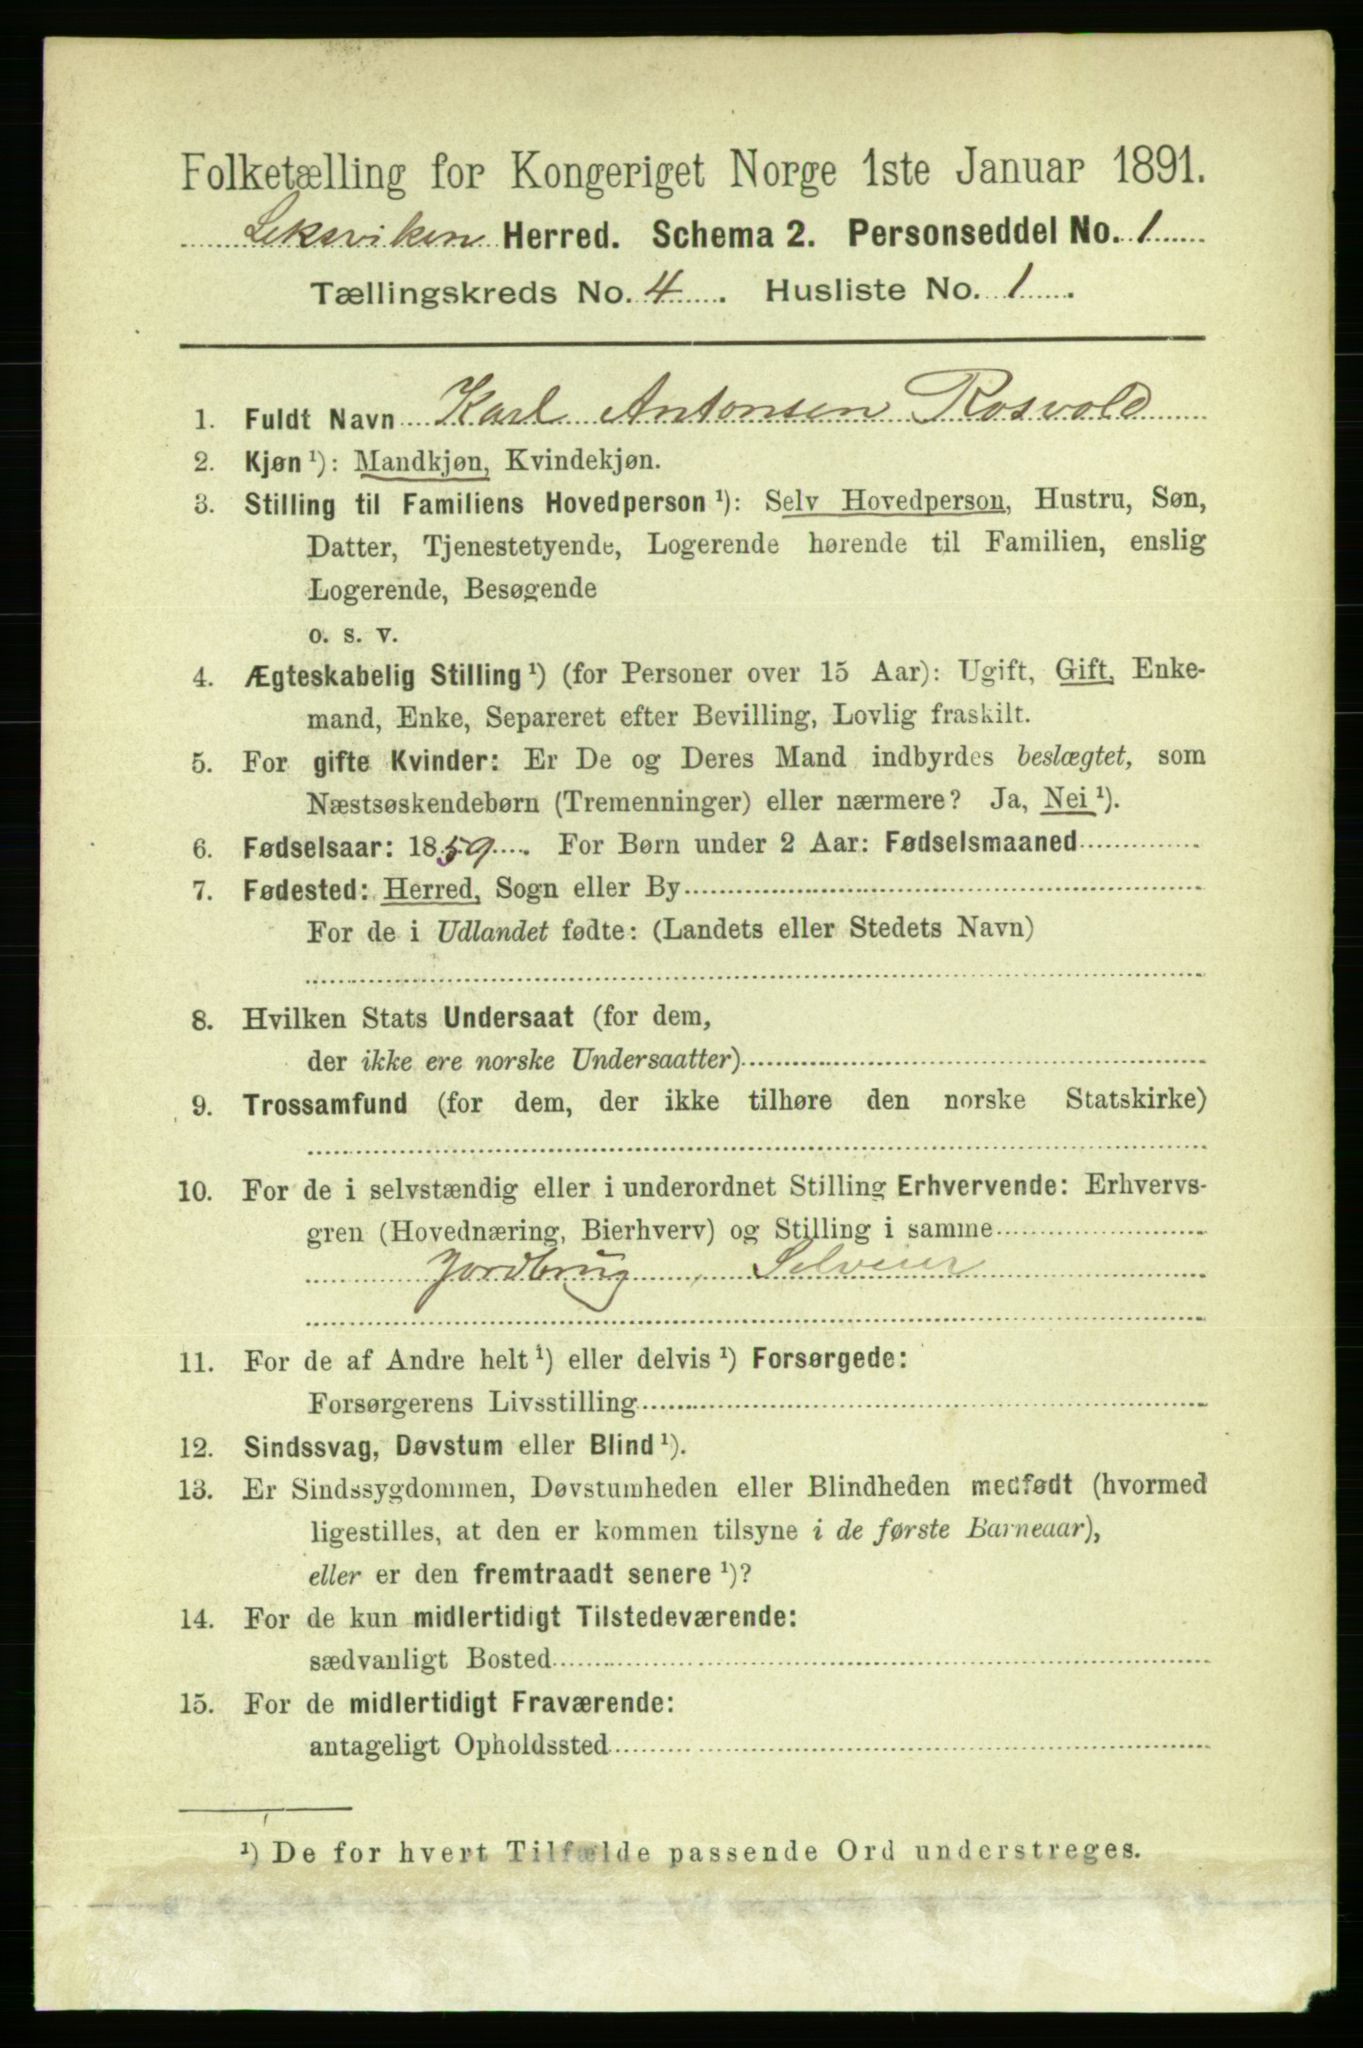 Folketælling for Kongeriget Norge 1ste Januar 1891.
Leksviken Herred. Schema 2. Personseddel No. 1
Tællingskreds No. 4. Husliste No. 1.
1. Fuldt Navn Karl Antonsen Rosvold
2. Kjøn ¹): Mandkjøn, Kvindekjøn.
3. Stilling til Familiens Hovedperson ¹): Selv Hovedperson, Hustru, Søn,
Datter, Tjenestetyende, Logerende hørende til Familien, enslig
Logerende, Besøgende
o. s. v.
4. Ægteskabelig Stilling ¹) (for Personer over 15 Aar): Ugift, Gift, Enke-
mand, Enke, Separeret efter Bevilling, Lovlig fraskilt.
5. For gifte Kvinder: Er De og Deres Mand indbyrdes beslægtet, som
Næstsøskendebørn (Tremenninger) eller nærmere? Ja, Nei ¹).
6. Fødselsaar: 1859. For Børn under 2 Aar: Fødselsmaaned
7. Fødested: Herred, Sogn eller By
For de i Udlandet fødte: (Landets eller Stedets Navn)
8. Hvilken Stats Undersaat (for dem,
der ikke ere norske Undersaatter)
9. Trossamfund (for dem, der ikke tilhøre den norske Statskirke)
10. For de i selvstændig eller i underordnet Stilling Erhvervende: Erhvervs-
gren (Hovednæring, Bierhverv) og Stilling i samme
Jordbrug, Selveier
11. For de af Andre helt ¹) eller delvis ¹) Forsørgede:
Forsørgerens Livsstilling
12. Sindssvag, Døvstum eller Blind ¹).
13. Er Sindssygdommen, Døvstumheden eller Blindheden medfødt (hvormed
ligestilles, at den er kommen tilsyne i de første Barneaar),
eller er den fremtraadt senere ¹)?
14. For de kun midlertidigt Tilstedeværende:
sædvanligt Bosted
15. For de midlertidigt Fraværende:
antageligt Opholdssted
¹) De for hvert Tilfælde passende Ord understreges.